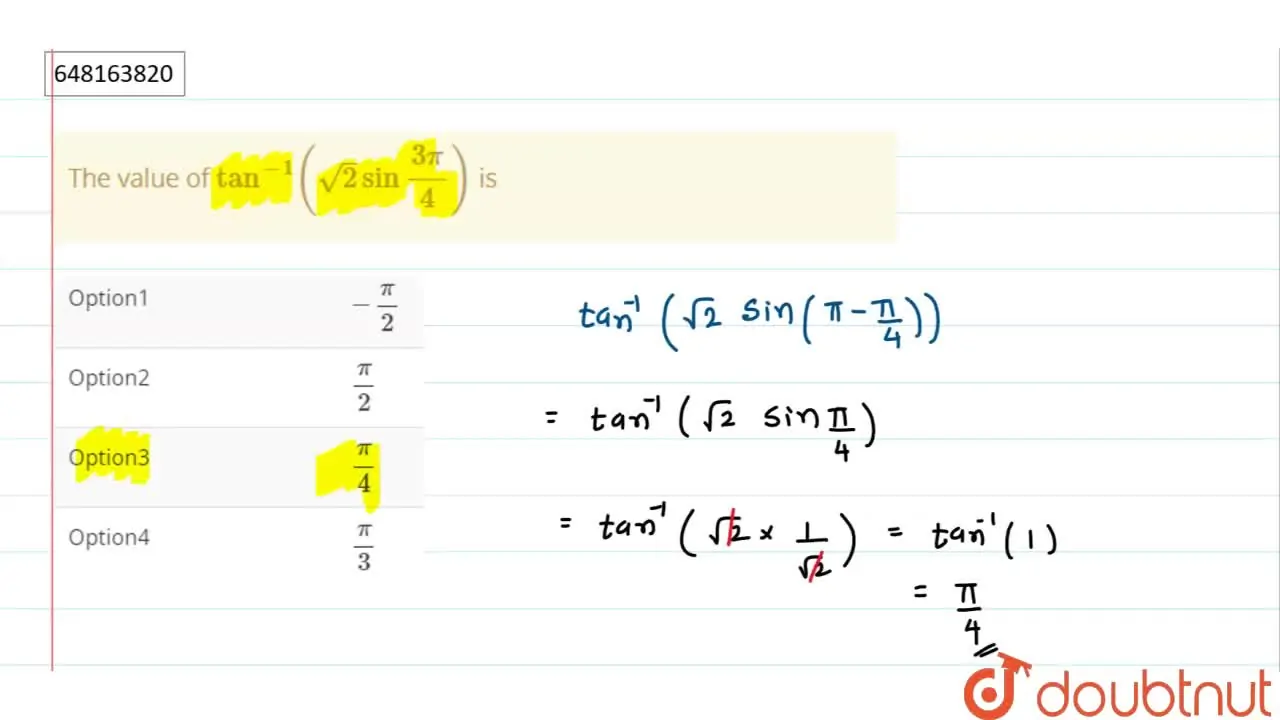 648163820
The value of tan⁻¹(√2 sin 3π/4) is
Option1 -π/2
Option2 π/2
Option3 π/4
Option4 π/3
tan⁻¹(√2 sin(π-π/4))
= tan⁻¹(√2 sin π/4)
= tan⁻¹(√2 × 1/√2) = tan⁻¹(1)
= π/4
doubtnut